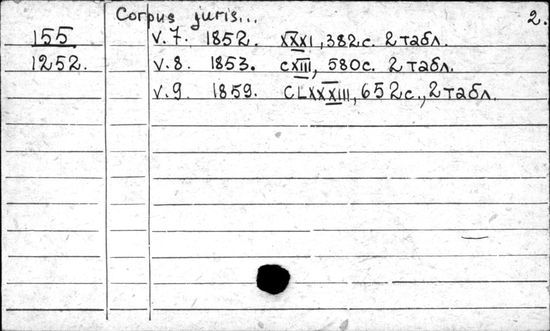 Corpus juris... 2.
155 v. 7. 1852. XXXI, 382 с. 2 табл.
1252. v. 8. 1853. CXIII, 580 с. 2 табл.
v. 9. 1859. CLXXXIII, 652 с., 2 табл.